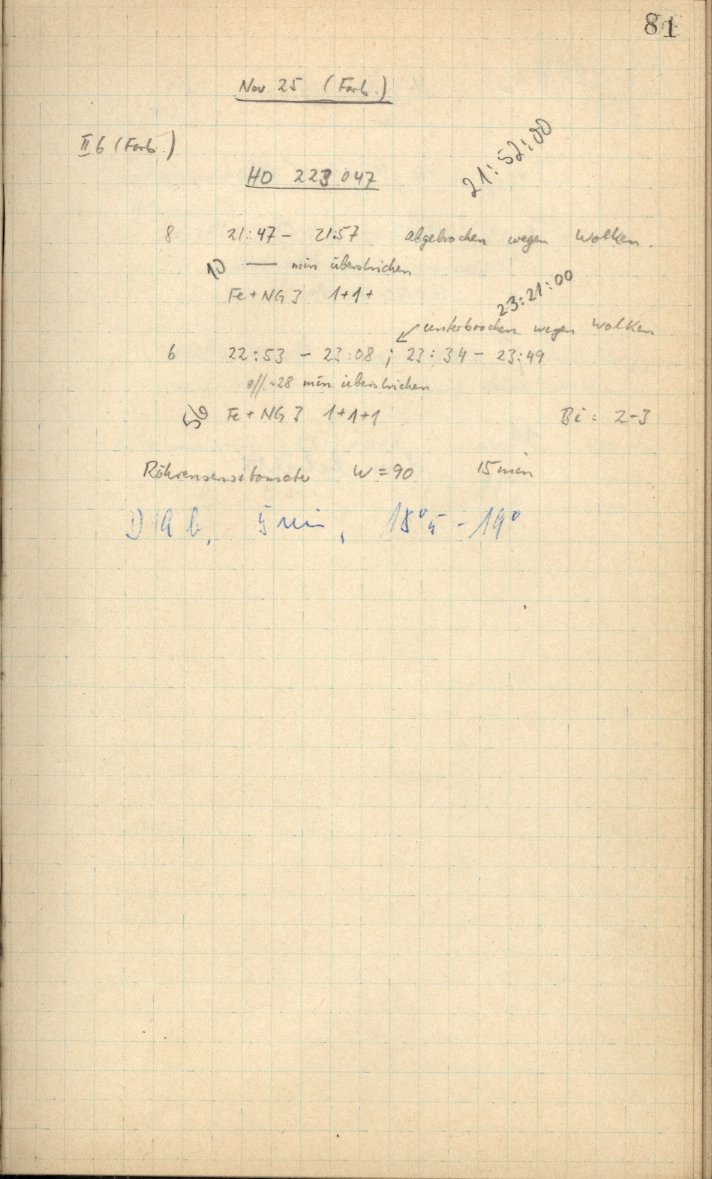 81
Nov 25 (Farb.)
II 6 (Farb.)
21:52:00
HD 223 047
8 21:47 - 21:57 abgebrochen wegen Wolken.
10 — min überstrichen
Fe + NG 3 1+1+
23:21:00
unterbrochen wegen Wolken
6 22:53 - 23:08 ; 23:34 - 23:49
eff. ~28 min überstrichen
56 Fe + NG 3 1+1+1 Bi: 2-3
Röhrensensitometer W = 90 15 min
D 19 b, 5 min, 18°5 - 19°